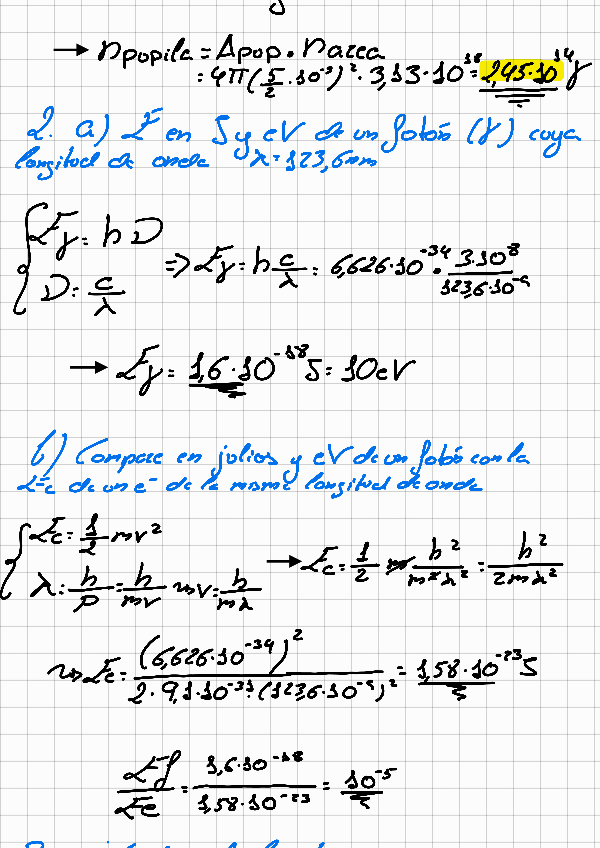 → npopila = Apop · narea
= 4π(5/2 · 10⁻³)² · 3,13 · 10¹⁸ = 2,45·10¹⁴ γ
2. a) E en J y eV de un fotón (γ) cuya
longitud de onda λ = 123,6 nm
{ Eγ = h ν
ν = c/λ ⇒ Eγ = h c/λ = 6,626·10⁻³⁴ · 3·10⁸/123,6·10⁻⁹
→ Eγ = 1,6·10⁻¹⁸ J = 10 eV
b) Compare en julios y eV de un fotón con la
Ec de un e⁻ de la misma longitud de onda
{ Ec = 1/2 mv²
λ = h/p = h/mv ⇝ v = h/mλ → Ec = 1/2 m h²/m²λ² = h²/2mλ²
⇝ Ec = (6,626·10⁻³⁴)²/2·9,1·10⁻³¹·(123,6·10⁻⁹)² = 1,58·10⁻²³ J
Ef/Ee = 1,6·10⁻¹⁸/1,58·10⁻²³ = 10⁻⁵